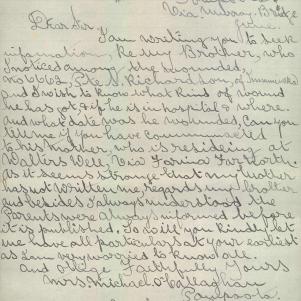 Via Murray Bridge
Dear Sir
I am writing you to seek
information, Re my Brother, who
I notice is among the wounded,
No 6663, Pte N. Richardson,
and I wish to know what kind of wound
he has got & if he is in hospital & where.
and what date was he wounded, Can you
tell me if you have communicated
to his Mother, who is residing at
Wallers Well, Via Farina Far North.
as it seems strange that my Mother
has not written me, regards my brother
and besides I always understood the
Parents were always informed before
it is published. So will you kindly let
me have all particulars at your earliest
as I am very worried to know all.
and Oblige Faithfully Yours
Mrs Michael O'Callaghan